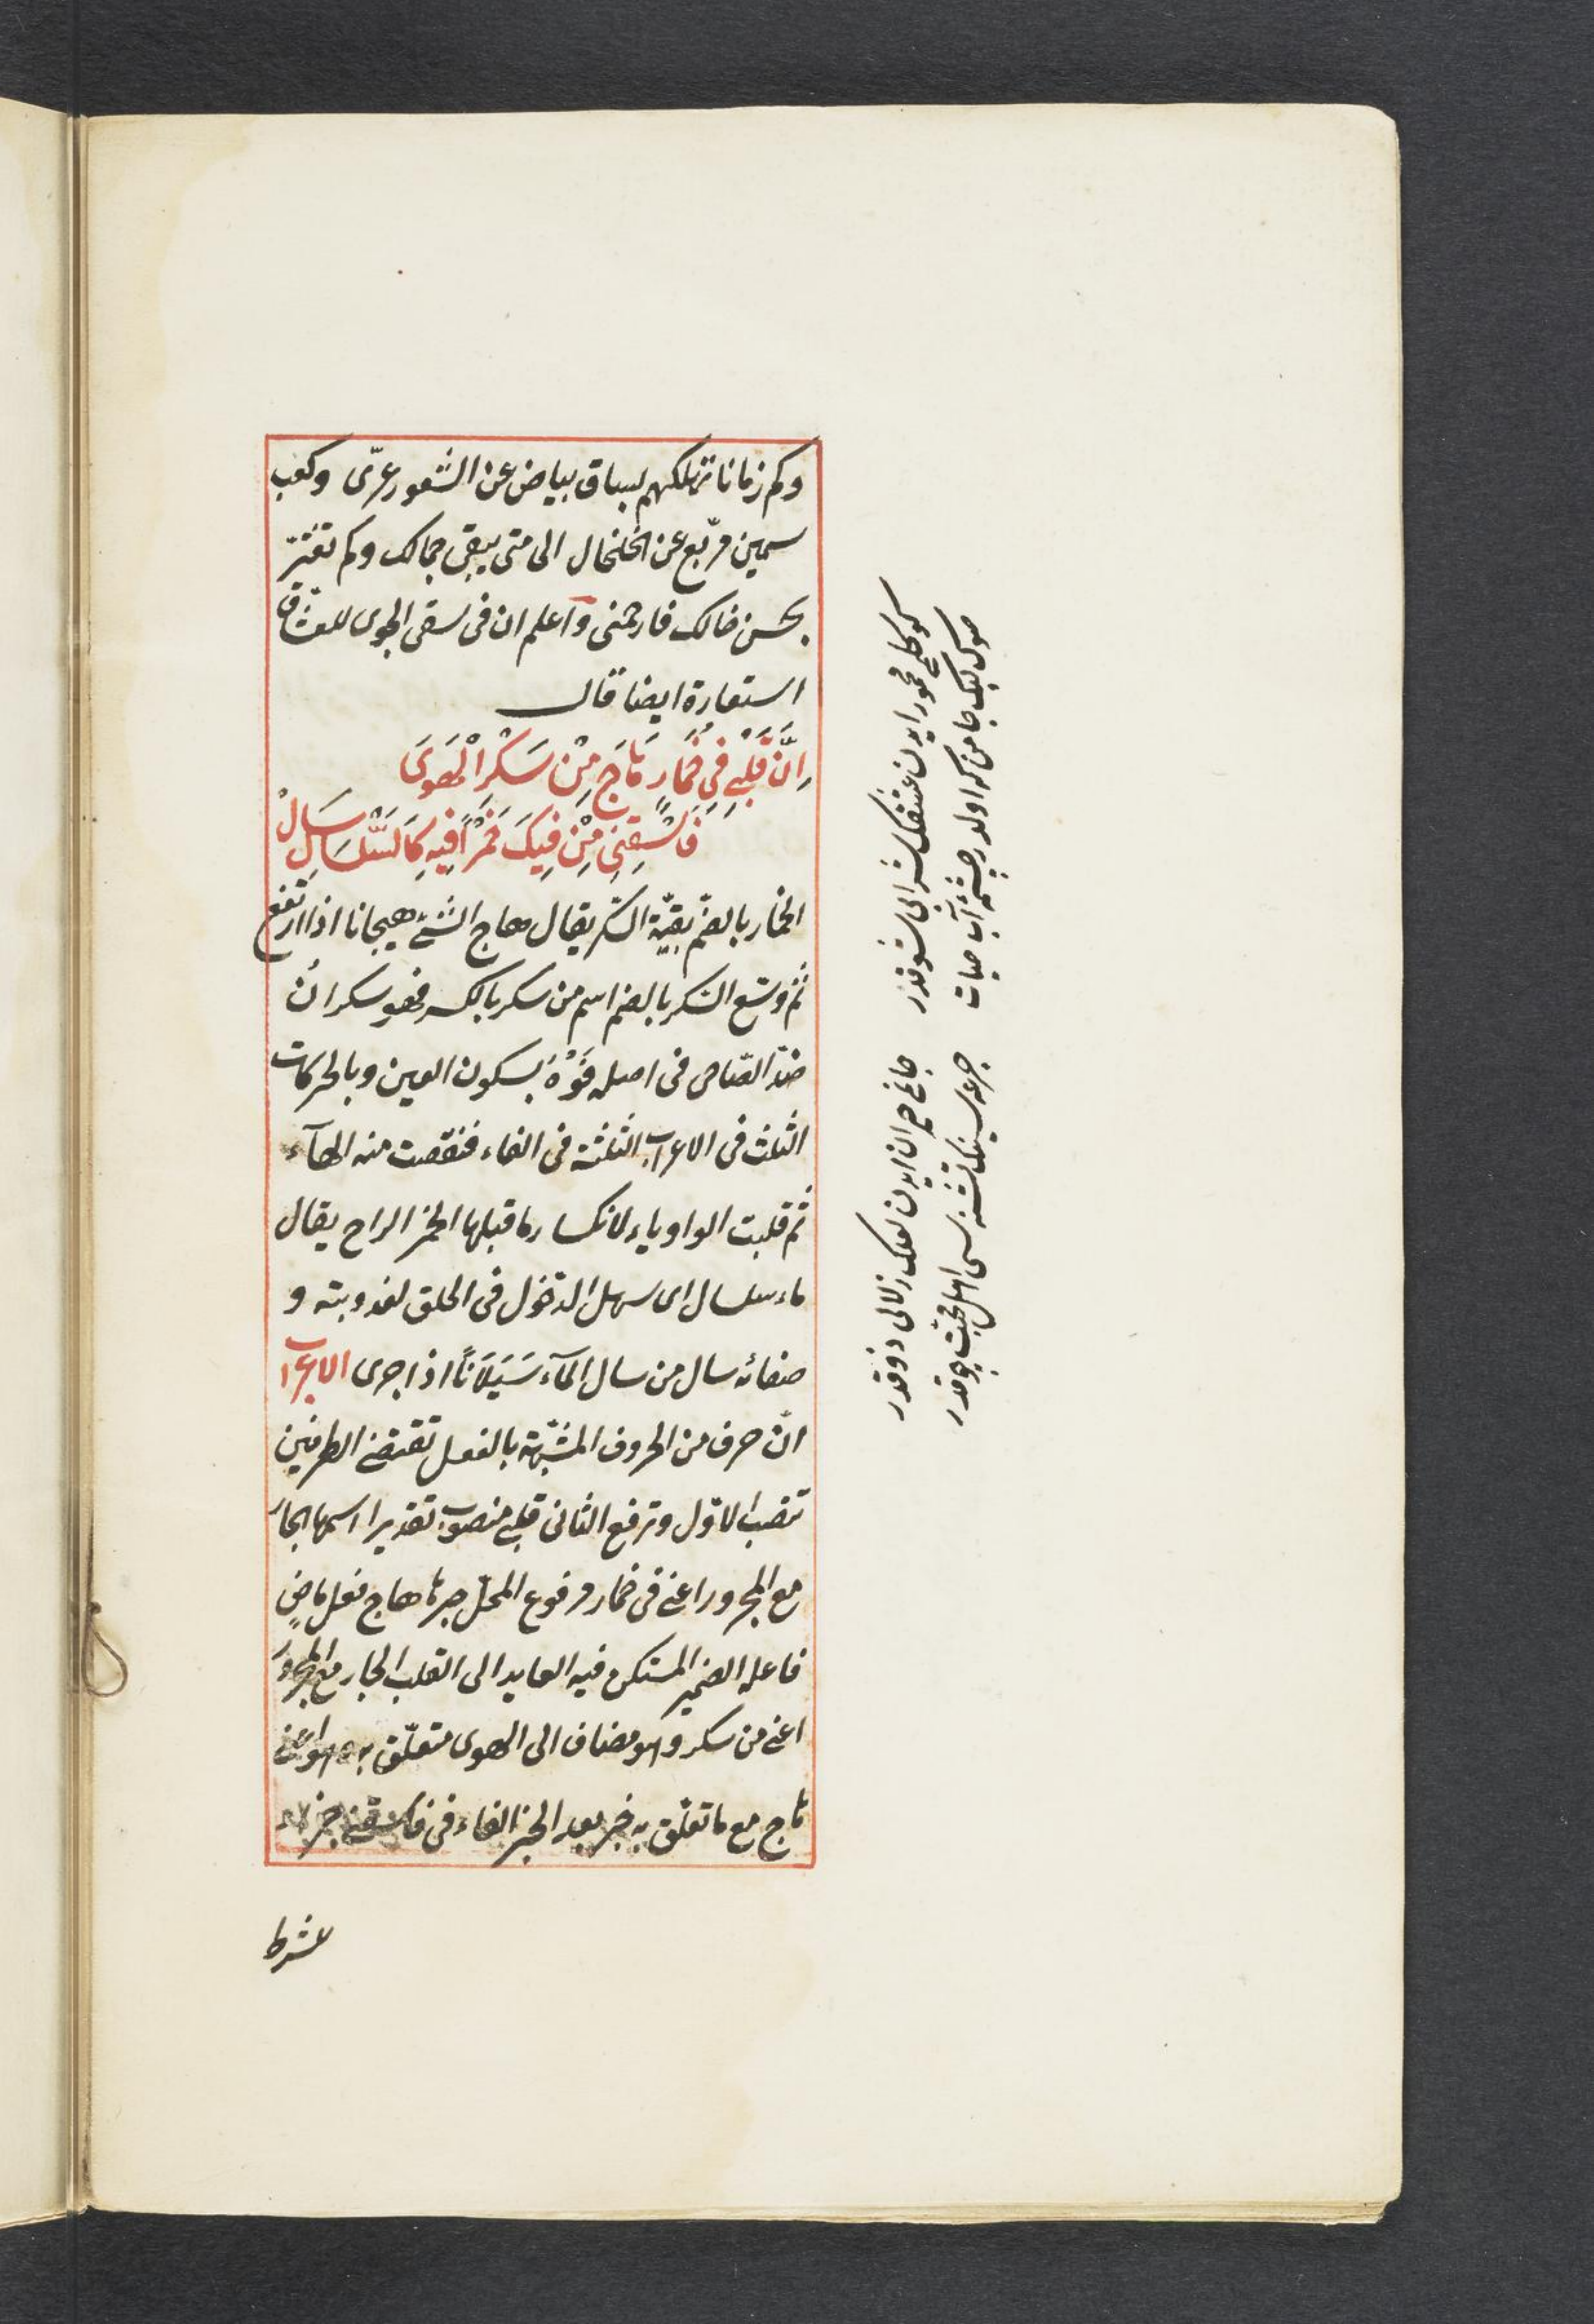 وكم زمانا تهلكهم بساق بياض عن الشعور عرّى وكعب
سمين مربّع عن الخلخال الى متى يبقى جمالك وكم تغترّ
بحسن خالك فارحمنى وآعلم ان فى سقى الهوى للعشاق
استعارة ايضا قال
اِنَّ قَلْبِي فِي خُمَارٍ هَاجَ مِنْ سَكْرِ الْهَوَى
فَاسْقِنِي مِنْ فِيكَ خَمْرًا فِيهِ كَالسَّلْسَالِ سَالْ
الخمار بالضمّ بقيّة السّكر يقال هاج الشّئ هيجانا اذا ارتفع
ثمّ وسّع السّكر بالضم اسم من سكر بالكسر فهو سكرانُ
ضدّ الصّاحى فى اصله فَوْهٌ بسكون العين وبالحركات
الثلث فى الاعراب الثلثة فى الفاء فنقصت منه الهآء
ثمّ قلبت الواو ياء لانكسار ما قبلها الخمر الراح يقال
ماء سلسال اى سهل الدّخول فى الحلق لعذوبته و
صفائه سال من سال المآء سَيَلَانًا اذا جرى الاعراب
انّ حرف من الحروف المشبّهة بالفعل تقتضى الطرفين
تنصب الاوّل وترفع الثانى قلبى منصوب تقديرا اسمها الجارّ
مع المجرور اعنى فى خمار مرفوع المحلّ خبرها هاج فعل ماضٍ
فاعله الضمير المستكن فيه العايد الى القلب الجار مع المجرور
اعنى من سكر وهو مضاف الى الهوى متعلّق به اعنى
هاج مع ما تعلّق به خبر بعد الخبر الفاء فى فاسقنى جزاء
لشرط
كوكلم مخمور ايدن عشقك شرابى شوقدر
جانمى حيران ايدن لعلك زلالى ذوقدر
صول لبك جامن كه اولدر چشمۀ آب حيات
جرعه سينك تشنه سى اهل محبّت چوقدر